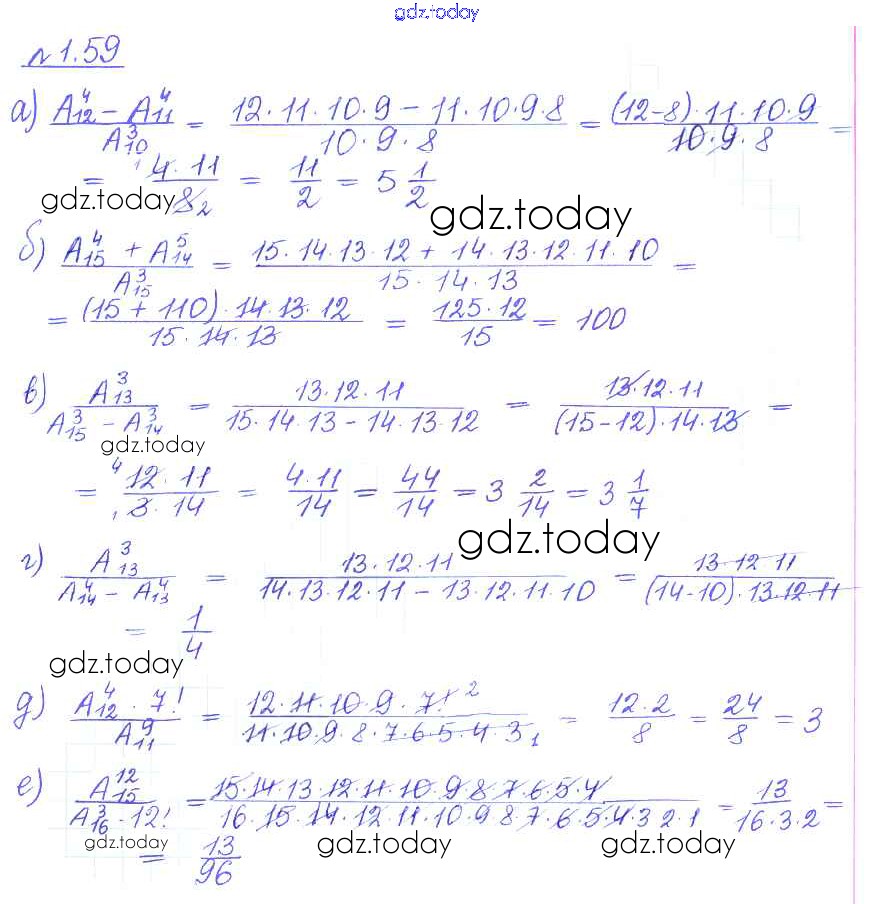 gdz.today
№1.59
а) (A₁₂⁴ − A₁₁⁴)/A₁₀³ = (12·11·10·9 − 11·10·9·8)/(10·9·8) = ((12−8)·11·10·9)/(10·9·8) =
= (4·11)/8 1 2 = 11/2 = 5 1/2
gdz.today gdz.today
б) (A₁₅⁴ + A₁₄⁵)/A₁₅³ = (15·14·13·12 + 14·13·12·11·10)/(15·14·13) =
= ((15 + 110)·14·13·12)/(15·14·13) = (125·12)/15 = 100
в) A₁₃³/(A₁₅³ − A₁₄³) = (13·12·11)/(15·14·13 − 14·13·12) = (13·12·11)/((15−12)·14·13) =
gdz.today
= (⁴12·11)/(₁3·14) = (4·11)/14 = 44/14 = 3 2/14 = 3 1/7
gdz.today
г) A₁₃³/(A₁₄⁴ − A₁₃⁴) = (13·12·11)/(14·13·12·11 − 13·12·11·10) = (13·12·11)/((14−10)·13·12·11)
= 1/4
gdz.today gdz.today
д) (A₁₂⁴·7!)/A₁₁⁹ = (12·11·10·9·7!²)/(11·10·9·8·7·6·5·4·3₁) = (12·2)/8 = 24/8 = 3
е) A₁₅¹²/(A₁₆³·12!) = (15·14·13·12·11·10·9·8·7·6·5·4)/(16·15·14·12·11·10·9·8·7·6·5·4·3·2·1) = 13/(16·3·2) =
= 13/96
gdz.today gdz.today gdz.today